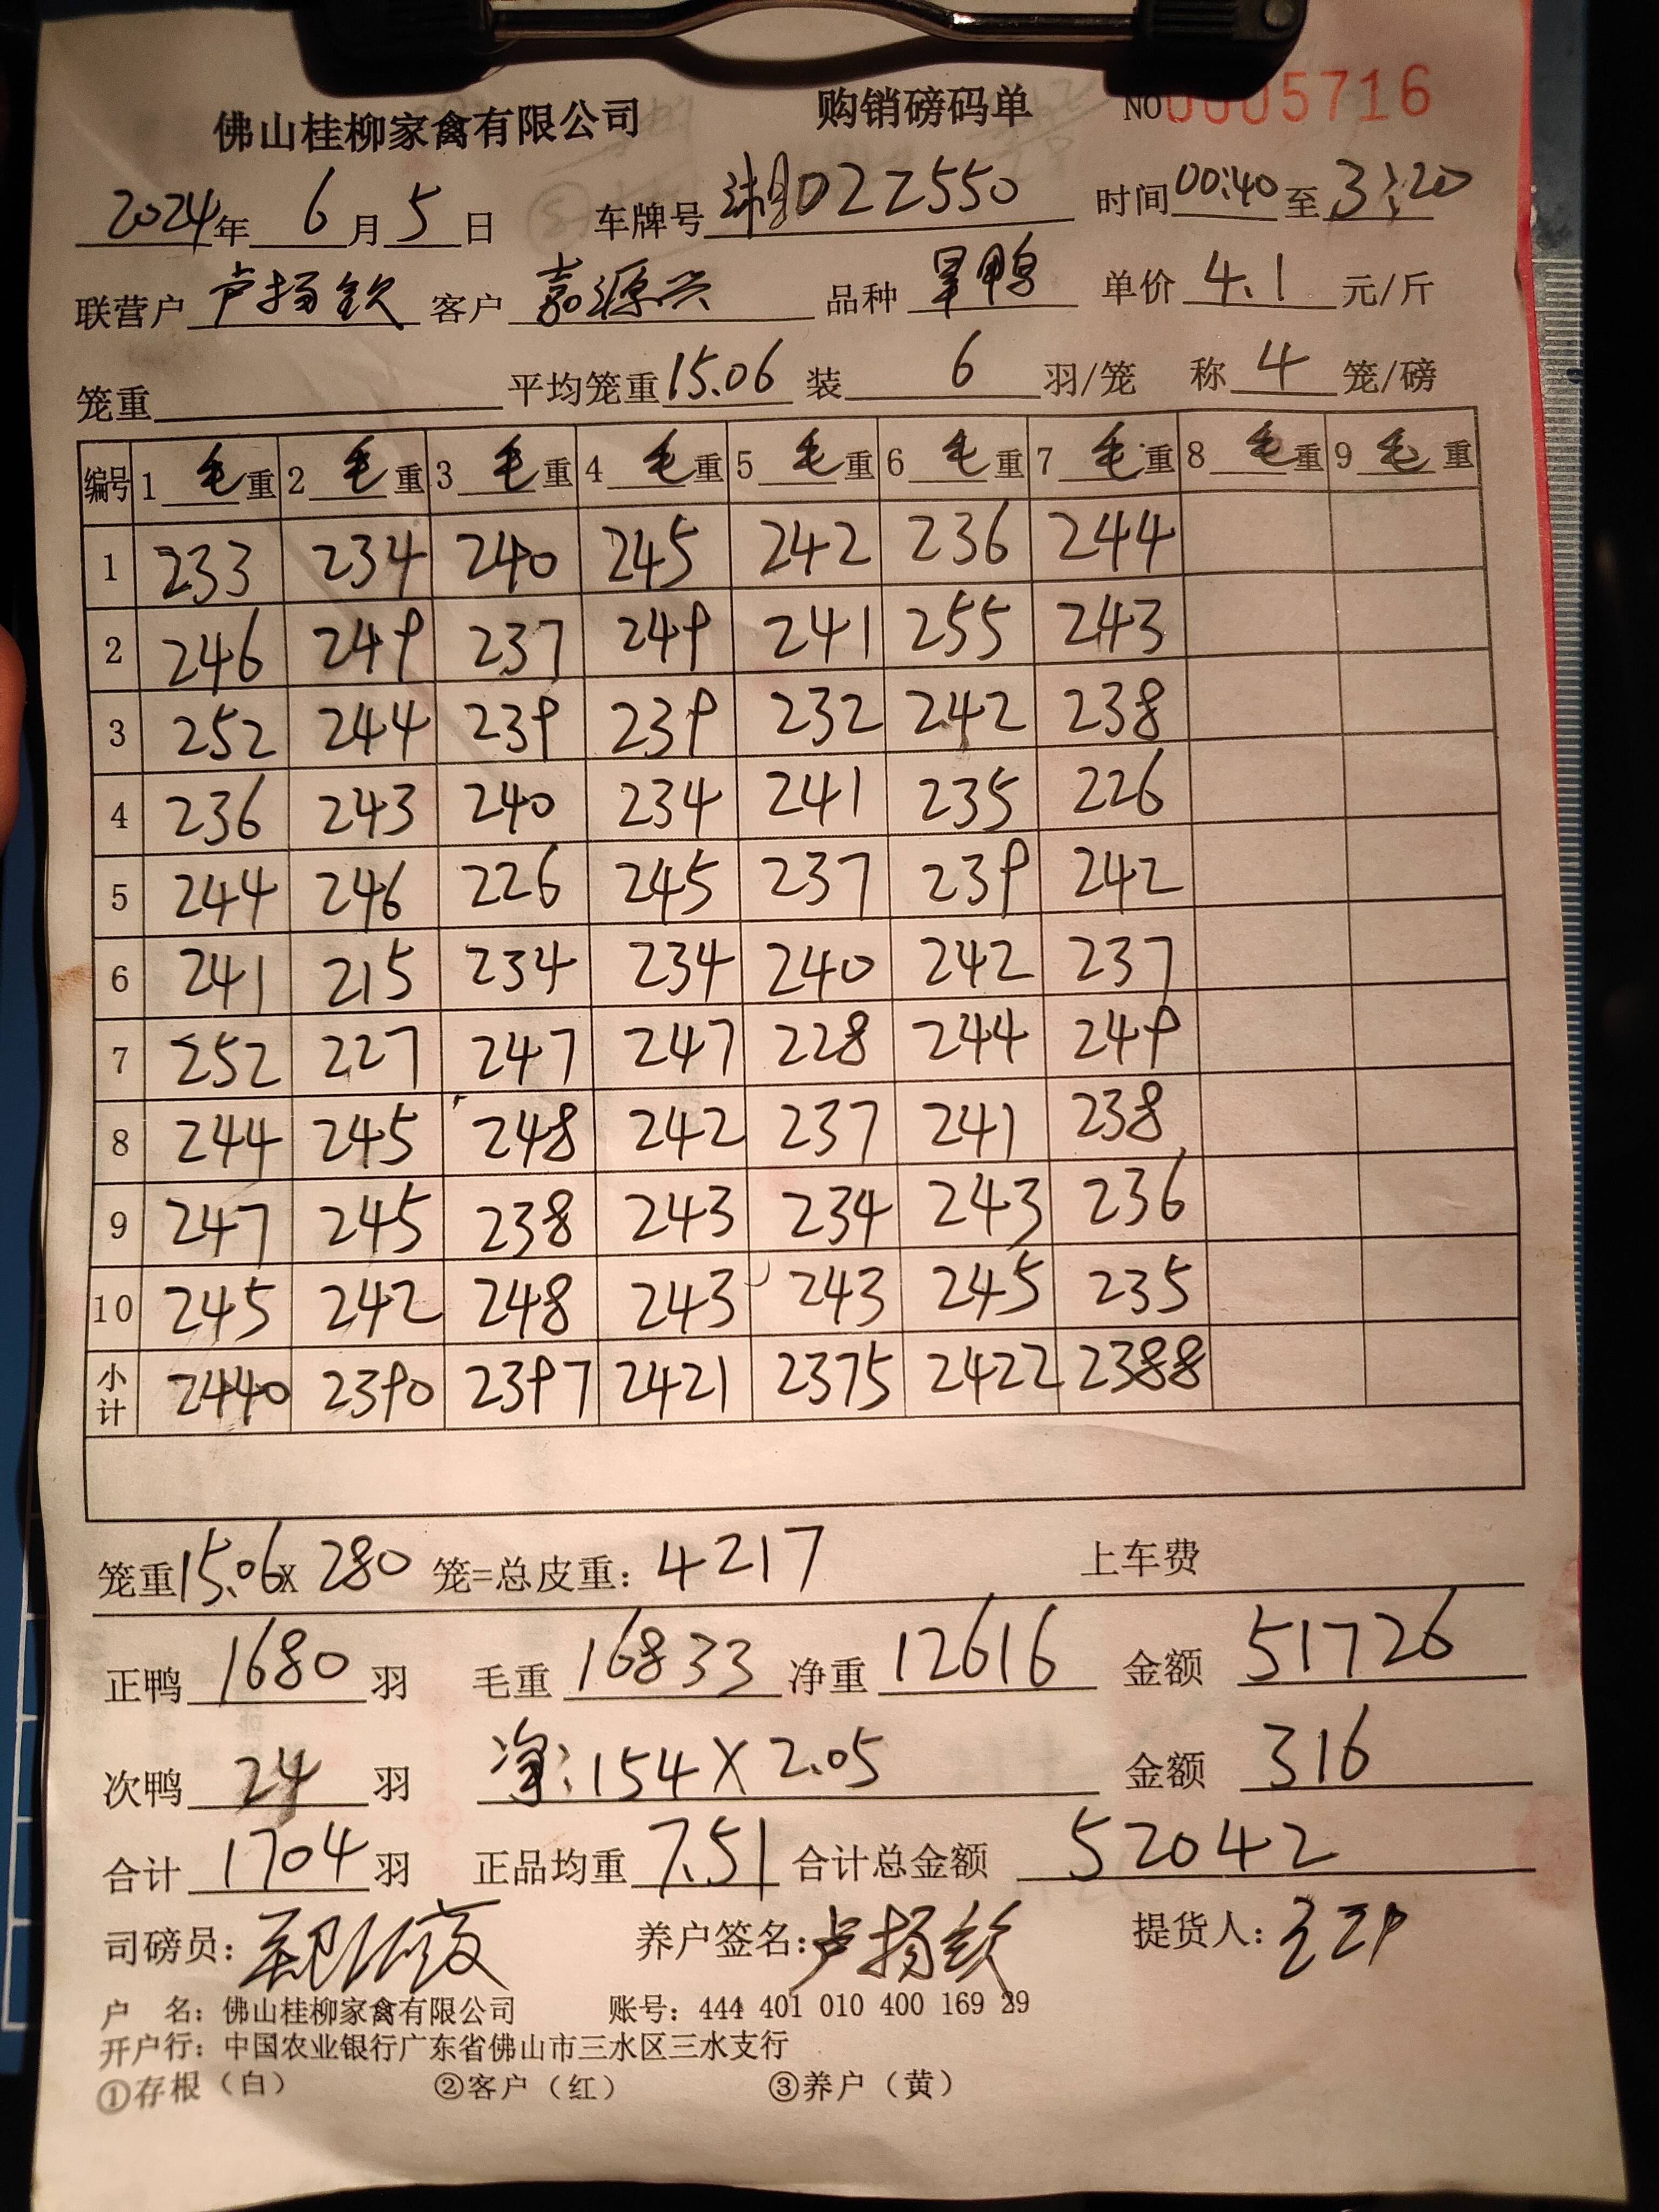 佛山桂柳家禽有限公司 购销磅码单 NO0005716
2024年 6月5日 车牌号 湘D22550 时间00:40至3:20
联营户 卢扬钦 客户 嘉源兴 品种 旱鸭 单价 4.1 元/斤
笼重 平均笼重15.06 装 6 羽/笼 称 4 笼/磅
编号 1 毛重 2 毛重 3 毛重 4 毛重 5 毛重 6 毛重 7 毛重 8 毛重 9 毛重
1 233 234 240 245 242 236 244
2 246 249 237 249 241 255 243
3 252 244 239 239 232 242 238
4 236 243 240 234 241 235 226
5 244 246 226 245 237 239 242
6 241 215 234 234 240 242 237
7 252 227 247 247 228 244 249
8 244 245 248 242 237 241 238
9 247 245 238 243 234 243 236
10 245 242 248 243 243 245 235
小计 2440 2390 2397 2421 2375 2422 2388
笼重15.06x 280 笼=总皮重: 4217 上车费
正鸭 1680 羽 毛重 16833 净重 12616 金额 51726
次鸭 24 羽 净:154X2.05 金额 316
合计 1704 羽 正品均重 7.51 合计总金额 52042
司磅员: 养户签名:卢扬钦 提货人:
户 名: 佛山桂柳家禽有限公司 账号: 444 401 010 400 169 29
开户行: 中国农业银行广东省佛山市三水区三水支行
①存根（白） ②客户（红） ③养户（黄）